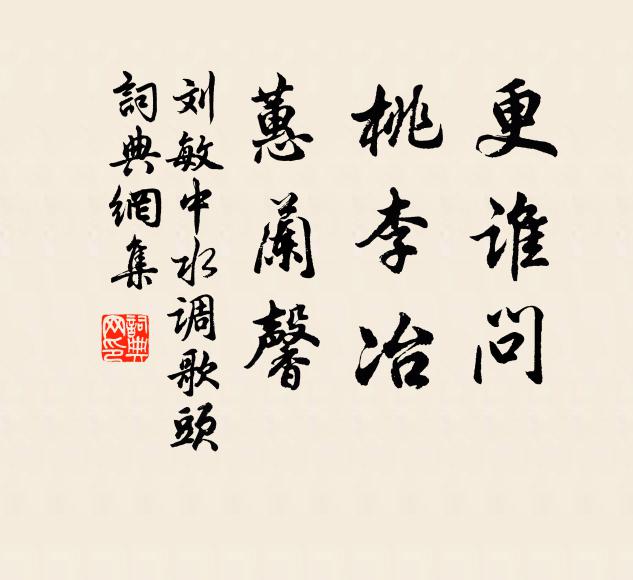 更谁问
桃李冶
蕙蘭馨
刘敏中水调歌頭
詞典網集
詞典
网印